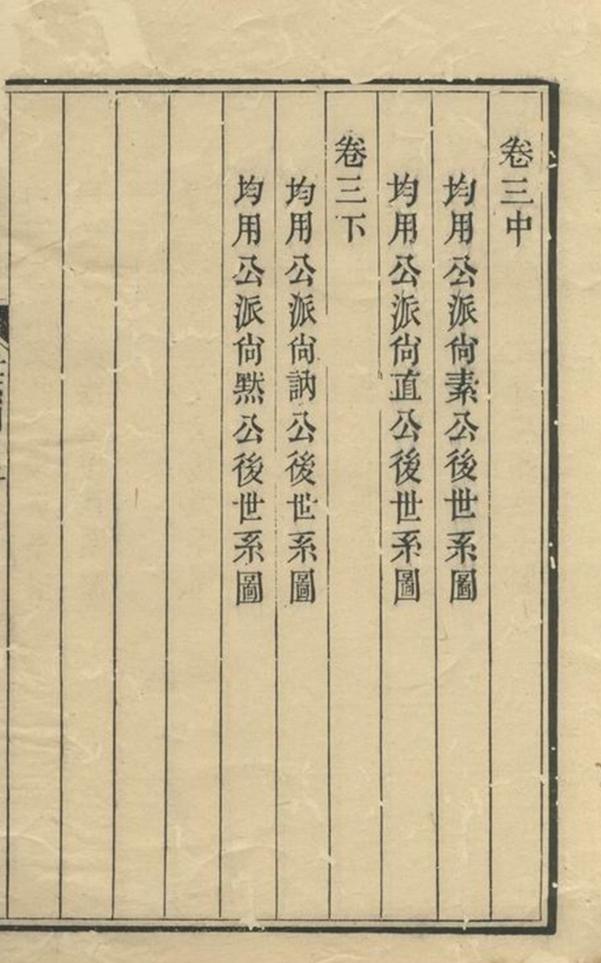 卷三中
均用公派尙素公後世系圖
均用公派尙直公後世系圖
卷三下
均用公派尙訥公後世系圖
均用公派尙默公後世系圖